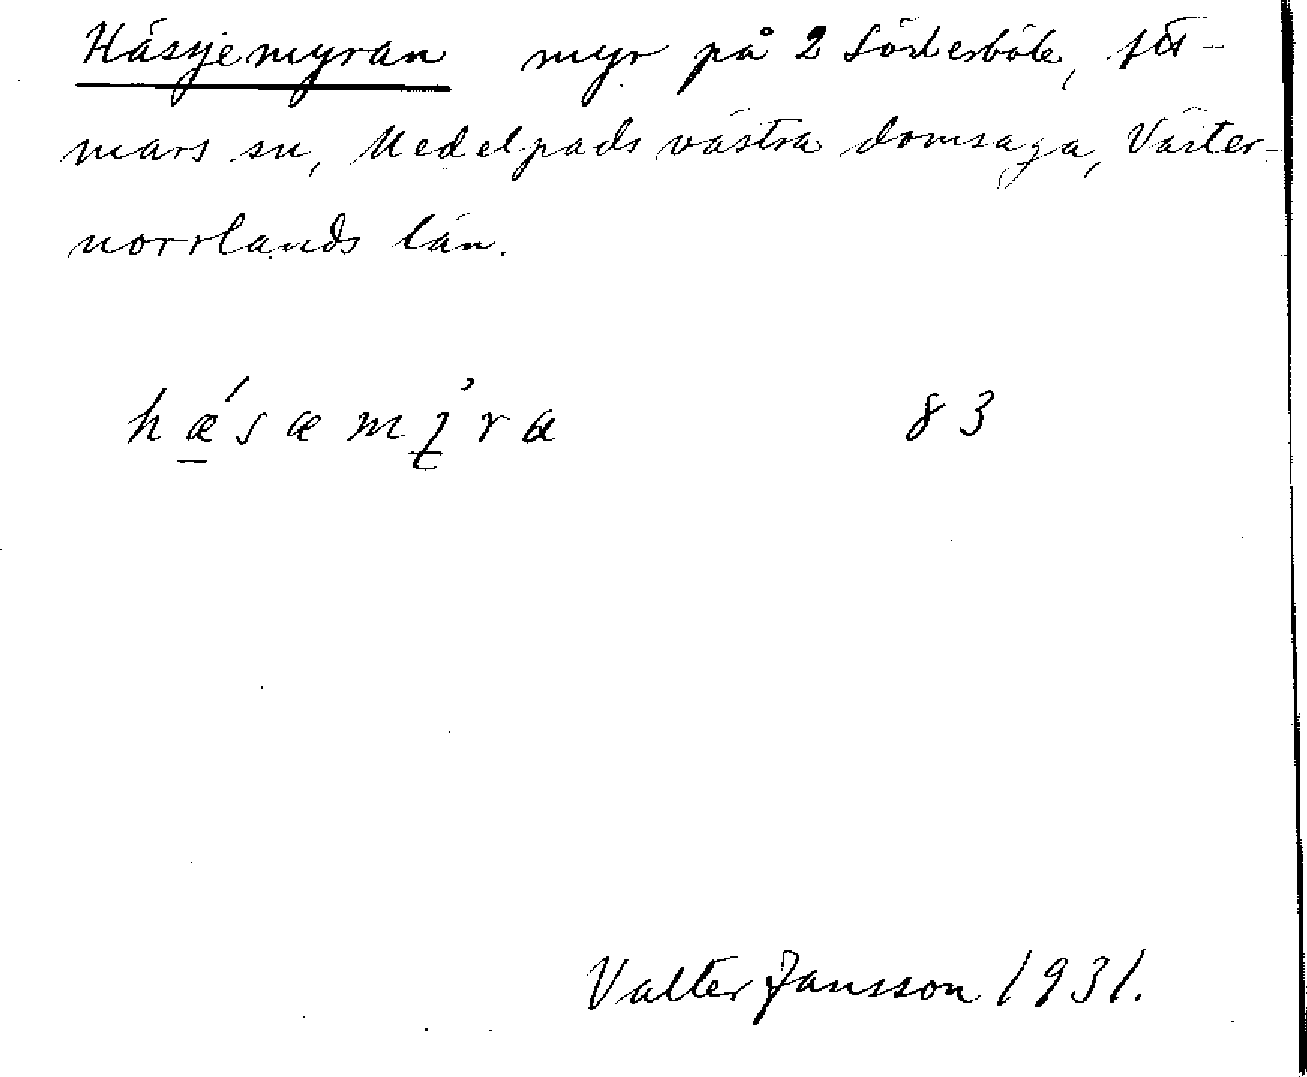 Hässjemyran myr på 2 Söderböle, Att-
mars sn, Medelpads västra domsaga, Väster-
norrlands län.
83
Valter Jansson 1931.